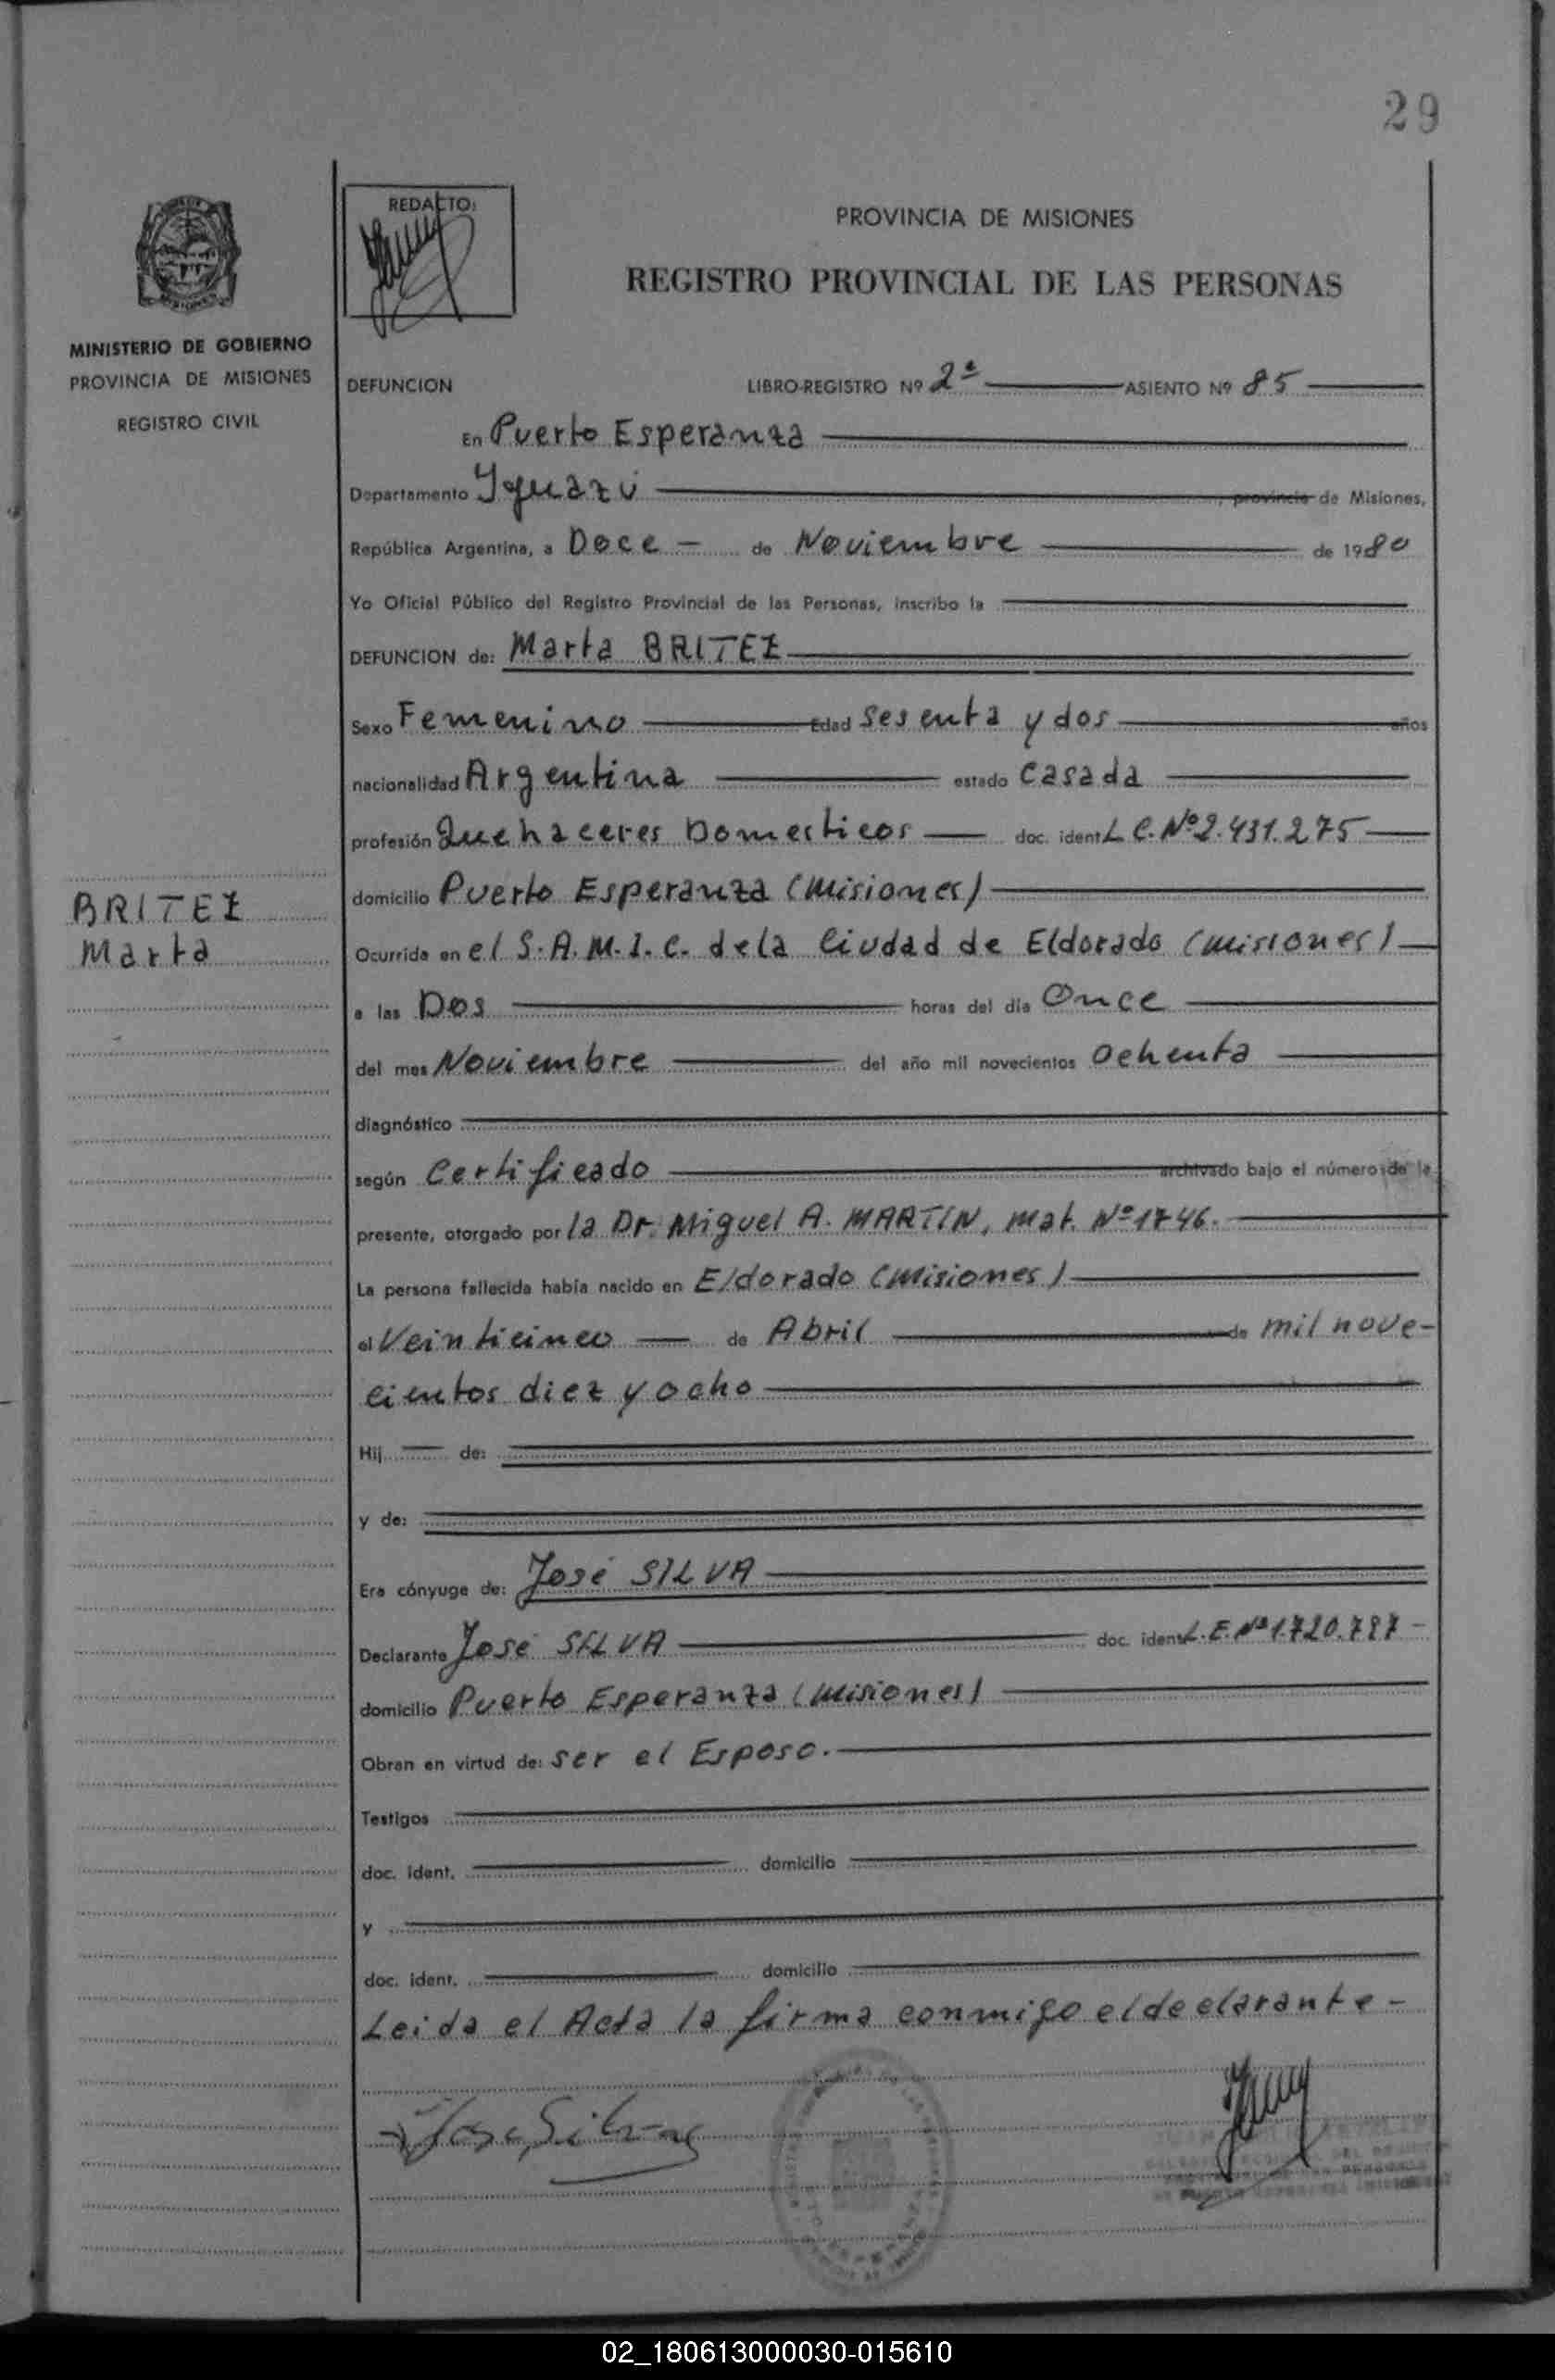 29
REDACTO:
PROVINCIA DE MISIONES
REGISTRO PROVINCIAL DE LAS PERSONAS
MINISTERIO DE GOBIERNO
PROVINCIA DE MISIONES
REGISTRO CIVIL
DEFUNCION LIBRO-REGISTRO Nº 2ª ASIENTO Nº 85
En Puerto Esperanza
Departamento Yguazú, provincia de Misiones,
República Argentina, a Doce - de Noviembre de 1980
Yo Oficial Público del Registro Provincial de las Personas, inscribo la
DEFUNCION de: Marta BRITEZ
Sexo Femenino Edad Sesenta y dos años
nacionalidad Argentina estado Casada
profesión Quehaceres Domesticos doc. ident L.C. Nº 2.431.275
BRITEZ
Marta
domicilio Puerto Esperanza (Misiones)
Ocurrida en el S.A.M.I.C. de la Ciudad de Eldorado (Misiones)
a las Dos horas del día Once
del mes Noviembre del año mil novecientos Ochenta
diagnóstico
según Certificado archivado bajo el número de la
presente, otorgado por la Dr. Miguel A. MARTIN, Mat. Nº 1746.
La persona fallecida había nacido en Eldorado (Misiones)
el Veinticinco de Abril de mil nove-
cientos diez y ocho
Hij de:
y de:
Era cónyuge de: José SILVA
Declarante José SILVA doc. ident L.E. Nº 1.720.787 -
domicilio Puerto Esperanza (Misiones)
Obran en virtud de: ser el Esposo.
Testigos
doc. ident. domicilio
y
doc. ident. domicilio
Leida el Acta la firma conmigo el declarante -
Jose Silva
02_180613000030-015610